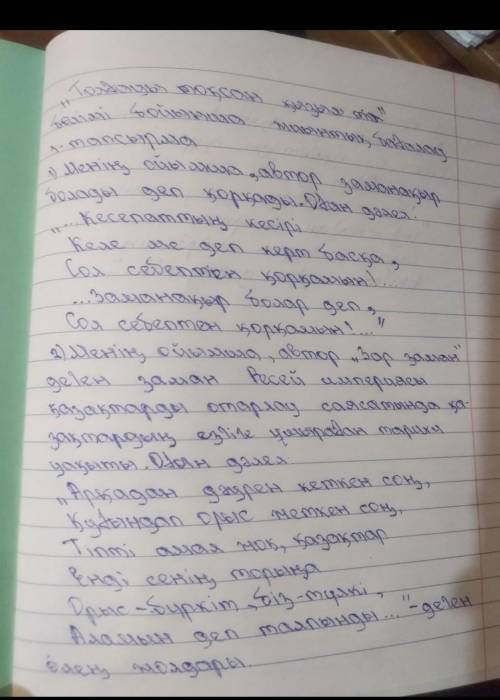 "Толғауы тоқсан қызыл тіл"
бөлімі бойынша жиынтық бағалау
1-тапсырма
1) Менің ойымша, автор заманақыр
болады деп қорқады. Оған дәлел:
"... Кесепаттың кесірі
Келе ме деп керт басқа,
Сол себептен қорқамын!...
...Заманақыр болар деп,
Сол себептен қорқамын!..."
2) Менің ойымша, автор "Зар заман"
деген заман Ресей империясы
қазақтарды отарлау саясатында қа-
зақтардың езгіге ұшыраған тарихи
уақыты. Оған дәлел:
"Арқадан дәурен кеткен соң,
Құғындап орыс жеткен соң,
Тіпті амал жоқ, қазақтар
Енді сенің торыңа
Орыс-бүркіт, біз-түлкі,
Аламын деп талпынды..." - деген
өлең жолдары.